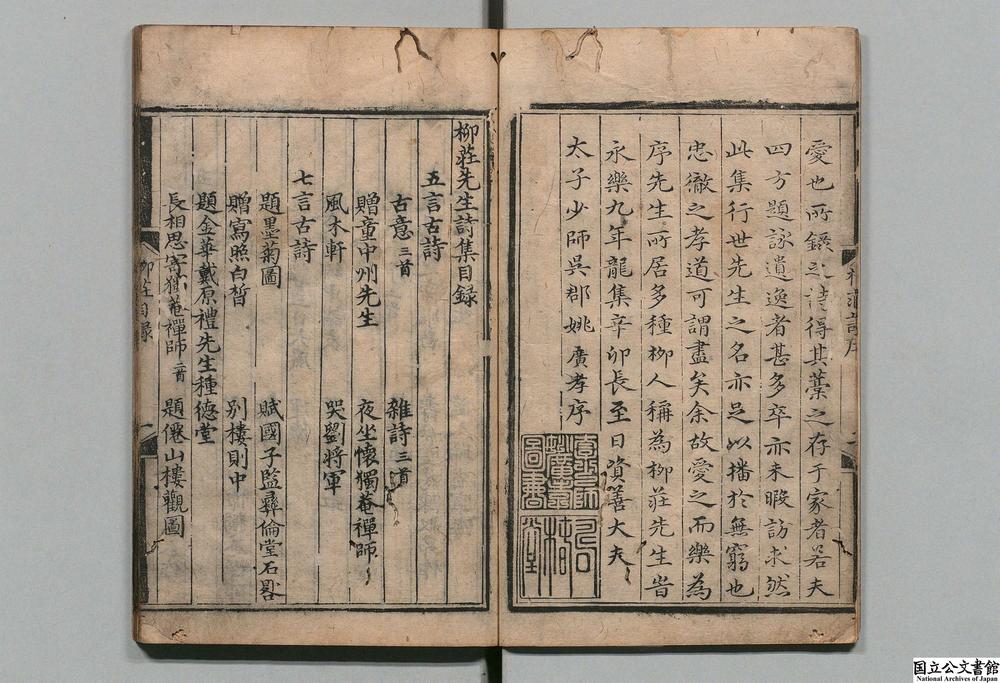 愛也所錄之詩得其藁之存于家者若夫
四方題詠遺逸者甚多卒亦未暇訪求然
此集行世先生之名亦足以播於無窮也
忠徹之孝道可謂盡矣余故愛之而樂為
序先生所居多種柳人稱為柳莊先生皆
永樂九年龍集辛卯長至日資善大夫
太子少師吳郡姚廣孝序
柳莊先生詩集目錄
五言古詩
古意三首 雜詩三首
贈童中州先生 夜坐懷獨菴禪師
風木軒 哭劉將軍
七言古詩
題墨菊圖 賦國子監彝倫堂石晷
贈寫照白晳 別樓則中
題金華戴原禮先生種德堂
長相思寄獨菴禪師二首 題僊山樓觀圖
柳莊目錄
国立公文書館
National Archives of Japan